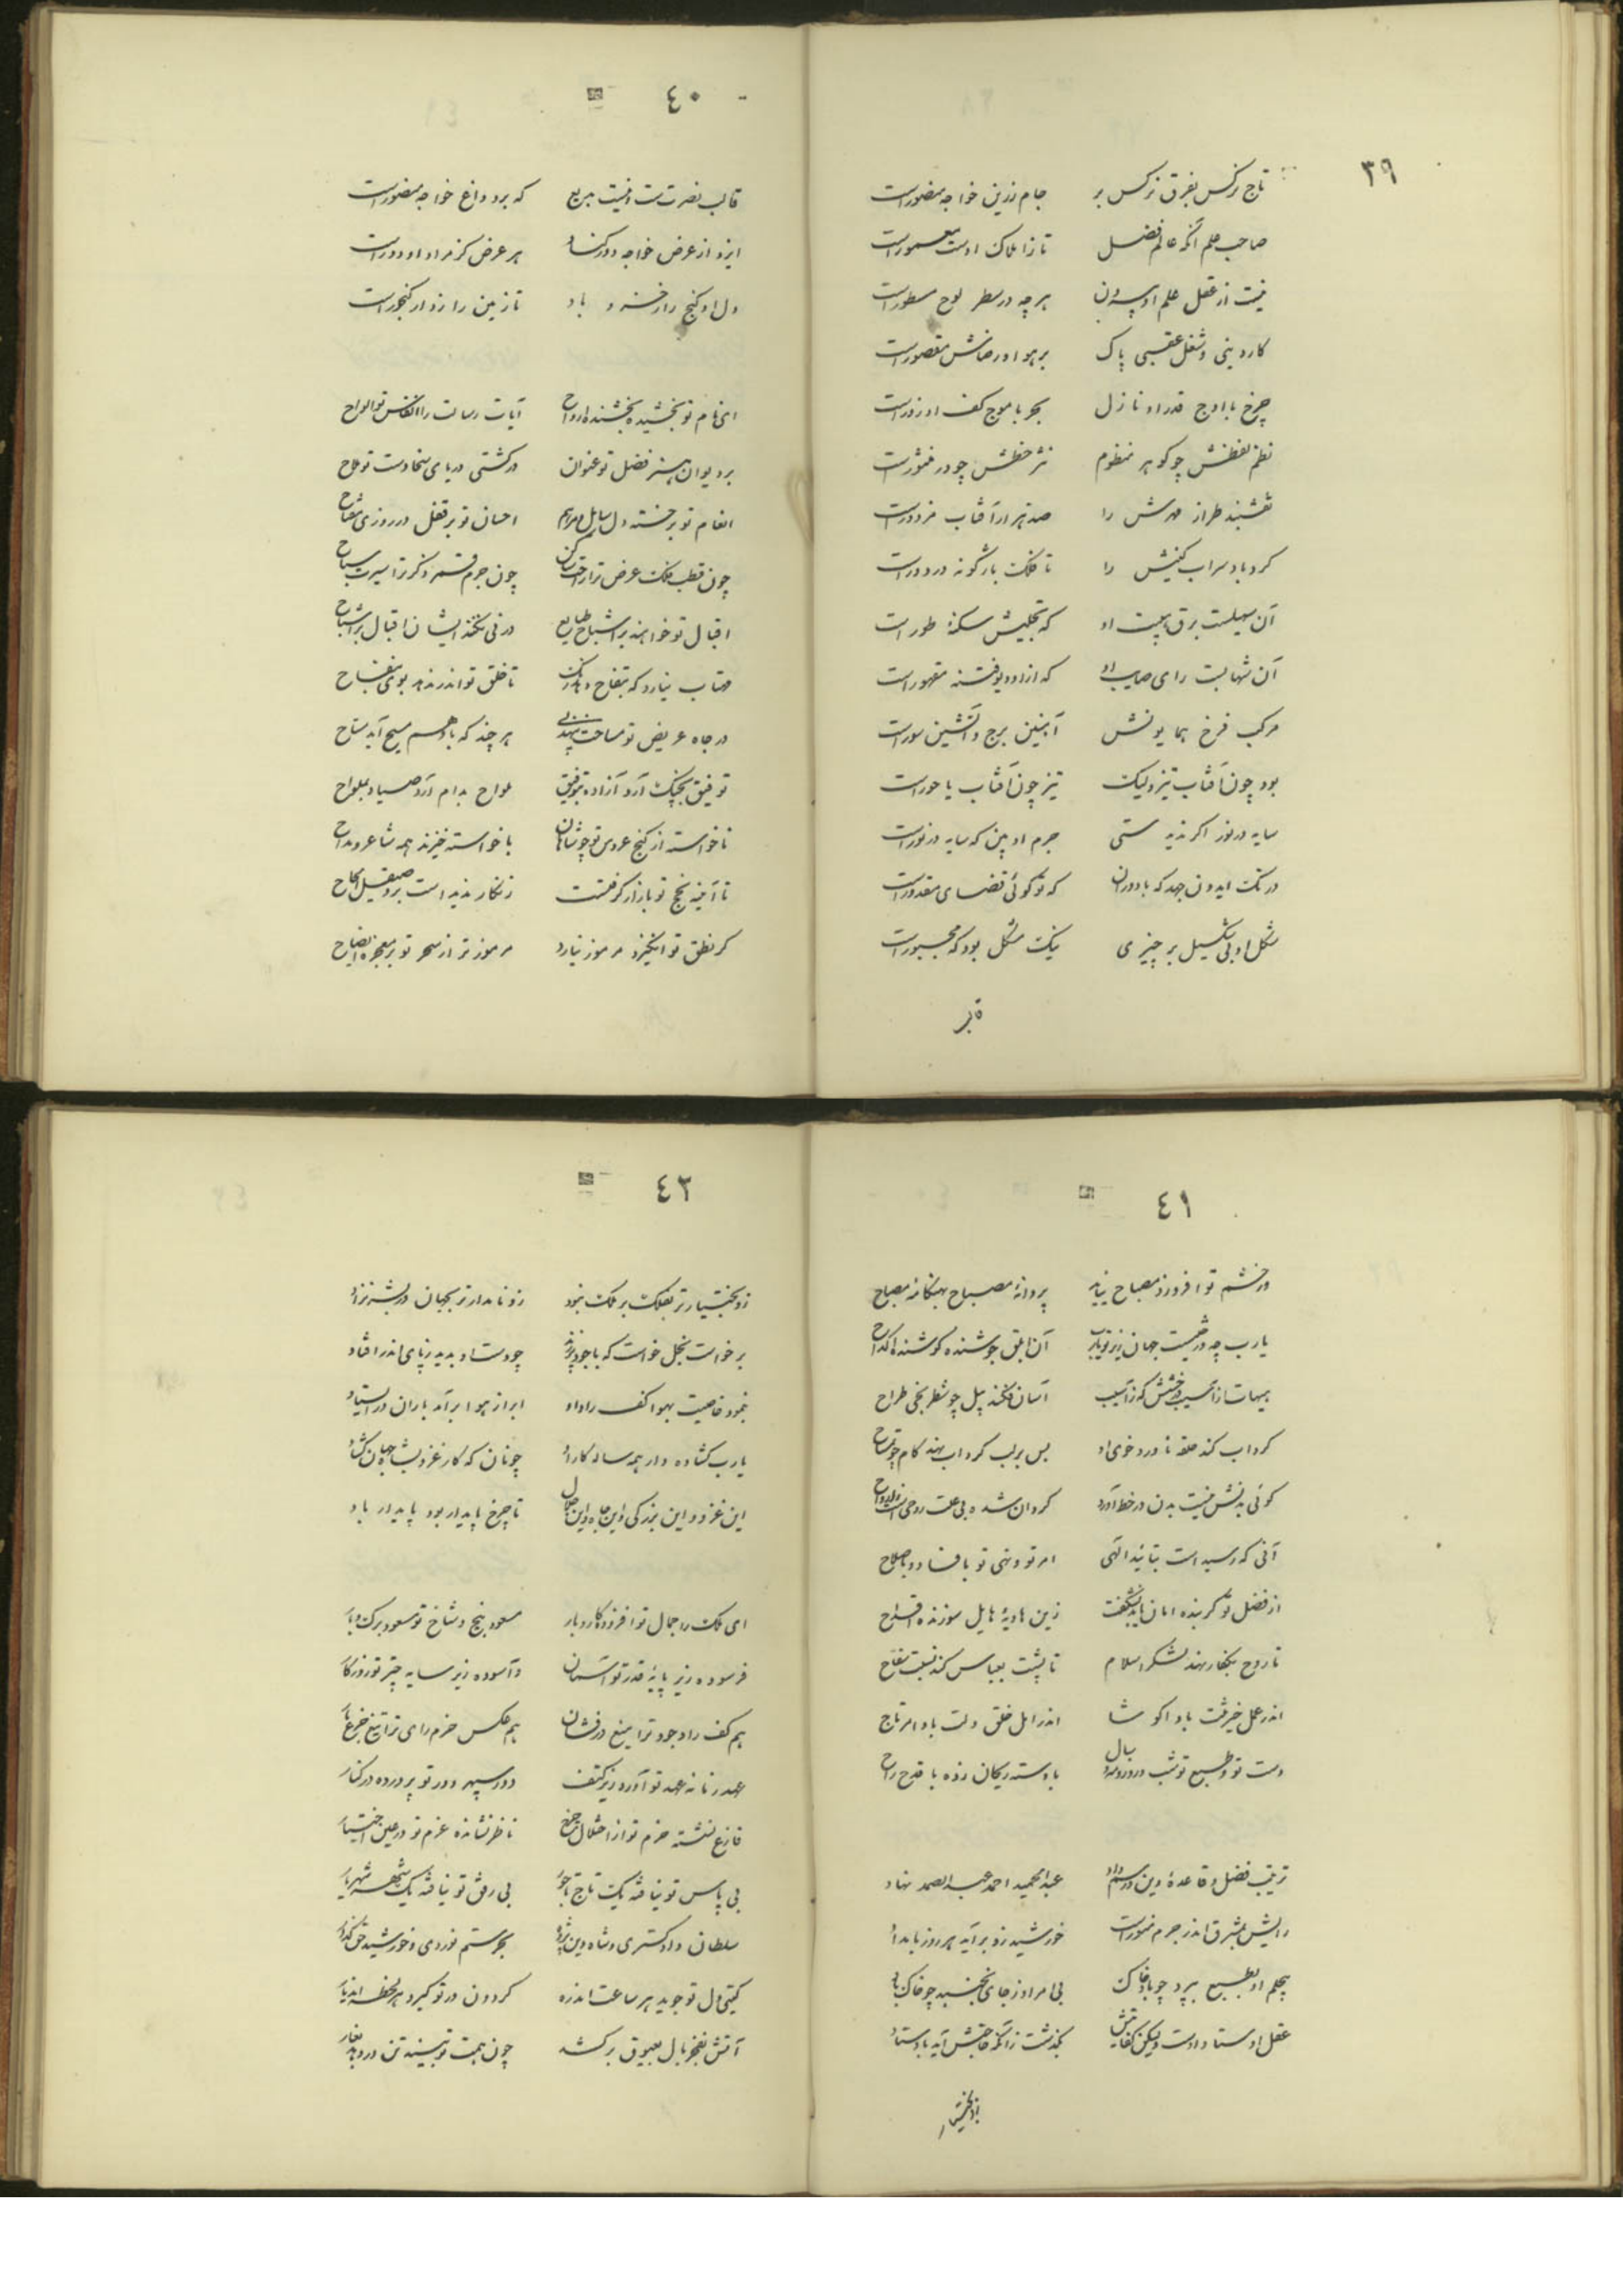 ٣٩
تاج نرکس بفرق نرکس بر جام زرین خواجه منصورست
صاحب علم آنکه عالم فضل تا ز املاک اوست معمورست
نیست از عقل علم او بیرون هر چه در سطر لوح مسطورست
کار دینی و شغل عقبی پاک بر هوا و رضاش مقصورست
چرخ با اوج قدر او نازل بحر با موج کف او زورست
نظم لفظش چو کوهر منظوم نثر خطش چو در منثورست
نقشبند طراز مهرش را صد هزار آفتاب مزدورست
کرد باد سراب کینش را تا فلک بازگونه در دورست
آن سهیلست برق هیبت او که تجلیش سکنهٔ طورست
آن شهابست رای صایب او که ازو دیو فتنه مقهورست
مرکب فرخ همایونش آبنین برج و آتشین سورست
بود چون آفتاب تیز ولیک تیز چون آفتاب با حورست
سایه در نور اکر ندیدستی جرم او بین که سایه در نورست
در تک ایدون جهد که با دوران که تو کوئی قضای مقدورست
شکل او بی شکیل بر چیزی نیک مشکل بود که مجبورست
قالب
٤٠
قالب نصرتست و نیست بریع که برو داغ خواجه منصورست
ایزد از عرض خواجه دور کناد هر عرض کز مراد او دورست
دل او کنج راز خسرو باد تا زمین رازدار کنجورست
ای نام تو بخشیده بخشنده ارواح آیات رسالت را انفاس تو الواح
بر دیوان هنر فضل تو عنوان در کشتی دریای سخاوت تو ملاح
انعام تو بر خسته دل سایل مرهم احسان تو بر قفل در روزی مفتاح
چون قطب فلک عرض ترا راحت ساکن چون جرم قمر ذکر ترا سیرت سیاح
اقبال تو خوانند بر اشباح طبایع در نی نکند ایشان اقبال بر اشباح
مهتاب نیارد که بتفاح دهد رنک تا خلق تو اندر ندهد بوی بتفاح
در جاه عریض تو مساحت هر چند که با وهم مسیح آید مساح
توفیق بچنک آرد آزاده بتوفیق ملواح بدام آرد صیاد بملواح
ناخواسته از کنج عروس تو چو شاهان با خواسته خیزند همه شاعر و مداح
تا آینه نجح تو بازار کرفتست زنکار ندیدست برو صیقل الحاح
کر نطق تو انکیزد مرموز نیارد مرموز تر از سحر تو بر معجزه ایضاح
٤١
در خشم تو افروزد مصباح نیاید پروانهٔ مصباح بهنکامهٔ مصباح
یارب چه درخشیست جهان زیر تو یارب آن ابلق جوشنده کوشنده کداح
هیهات از آسیب درخشش که ز آسیب آسان فکند پیل چو شطرنجی طراح
کرداب کند حلقه ناورد خوی او پس بر لب کرداب نهد کام چو تمساح
کوئی بدنش نیست بدن در خط آورد کردان شده بی علت روحی است ز ارواح
آنی که رسیدست بتایید الهی امر تو و نهی تو بافساد و باصلاح
از فضل تو کر بنده امان یابد نشکفت زین هاویهٔ هایل سوزنده اقداح
تا روح بکفار نهد لشکر اسلام تا پشت بعباس کند نسبت سفاح
اندر عمل خیرقت باد اکوشا اندر امل خلق دلت باد امرتاح
دست تو و طبع تو شب و روز و مه و سال با دسته ریحان زده با قدح راح
ترتیب فضل و قاعدهٔ دین و رسم داد عبدالحمید احمد عبدالصمد نهاد
رایش بمشرق اندر جرم منورست خورشید زو برآید هر روز بامداد
بیحلم او بطبیع بپرد چو باد خاک بی امر او ز جای نجنبد چو خاک باد
عقل اوستاد اوست ولیکن کفایتش بکذشت زآنکه حاجتش آید باوستاد
زو بختیار
٤٢
زو بختیارتر بفلک بر ملک نبود زو نامدارتر بجهان در بشر نزاد
برخاست بخل خواست که با جود بر زند چو دست او بدید ز پای اندر افتاد
بنمود خاصیت بهوا کف راد او ابر از هوا بر آمد باران در ایستاد
یارب کشاده دار همه ساله کار او چونان که کار عزو بشاه جهان کشاد
این عز و این بزرکی و این جاه و این جلال تا چرخ پایدار بود پایدار باد
ای ملک را جمال تو افزوده کار و بار مسعود بیخ و شاخ تو مسعود برک و بار
فرسوده زیر پایهٔ قدر تو آسمان و آسوده زیر سایه چتر تو روزکار
هم کف راد جود ترا میغ درفشان هم عکس حزم رای ترا تیغ
عهد زمانه عهد تو آورده زیر کتف دور سپهر دور تو پرورده در کنار
فارغ نشسته حزم تو از احتلال ناظر نشانده عزم تو در عین اختیار
بی پاس تو نیافته یک تاج تاجور بی رفق تو نیافته یک شهر شهریار
سلطان داد کستری و شاه دین پژوه بحر ستم نوردی و خورشید حق کذار
کیتی دل تو جوید هر ساعت اندر کردون در تو کیرد هر لحظه اندر یار
آتش بفخر بال بعیوق بر کشد چون همت تو بیند تن در دهد بعار